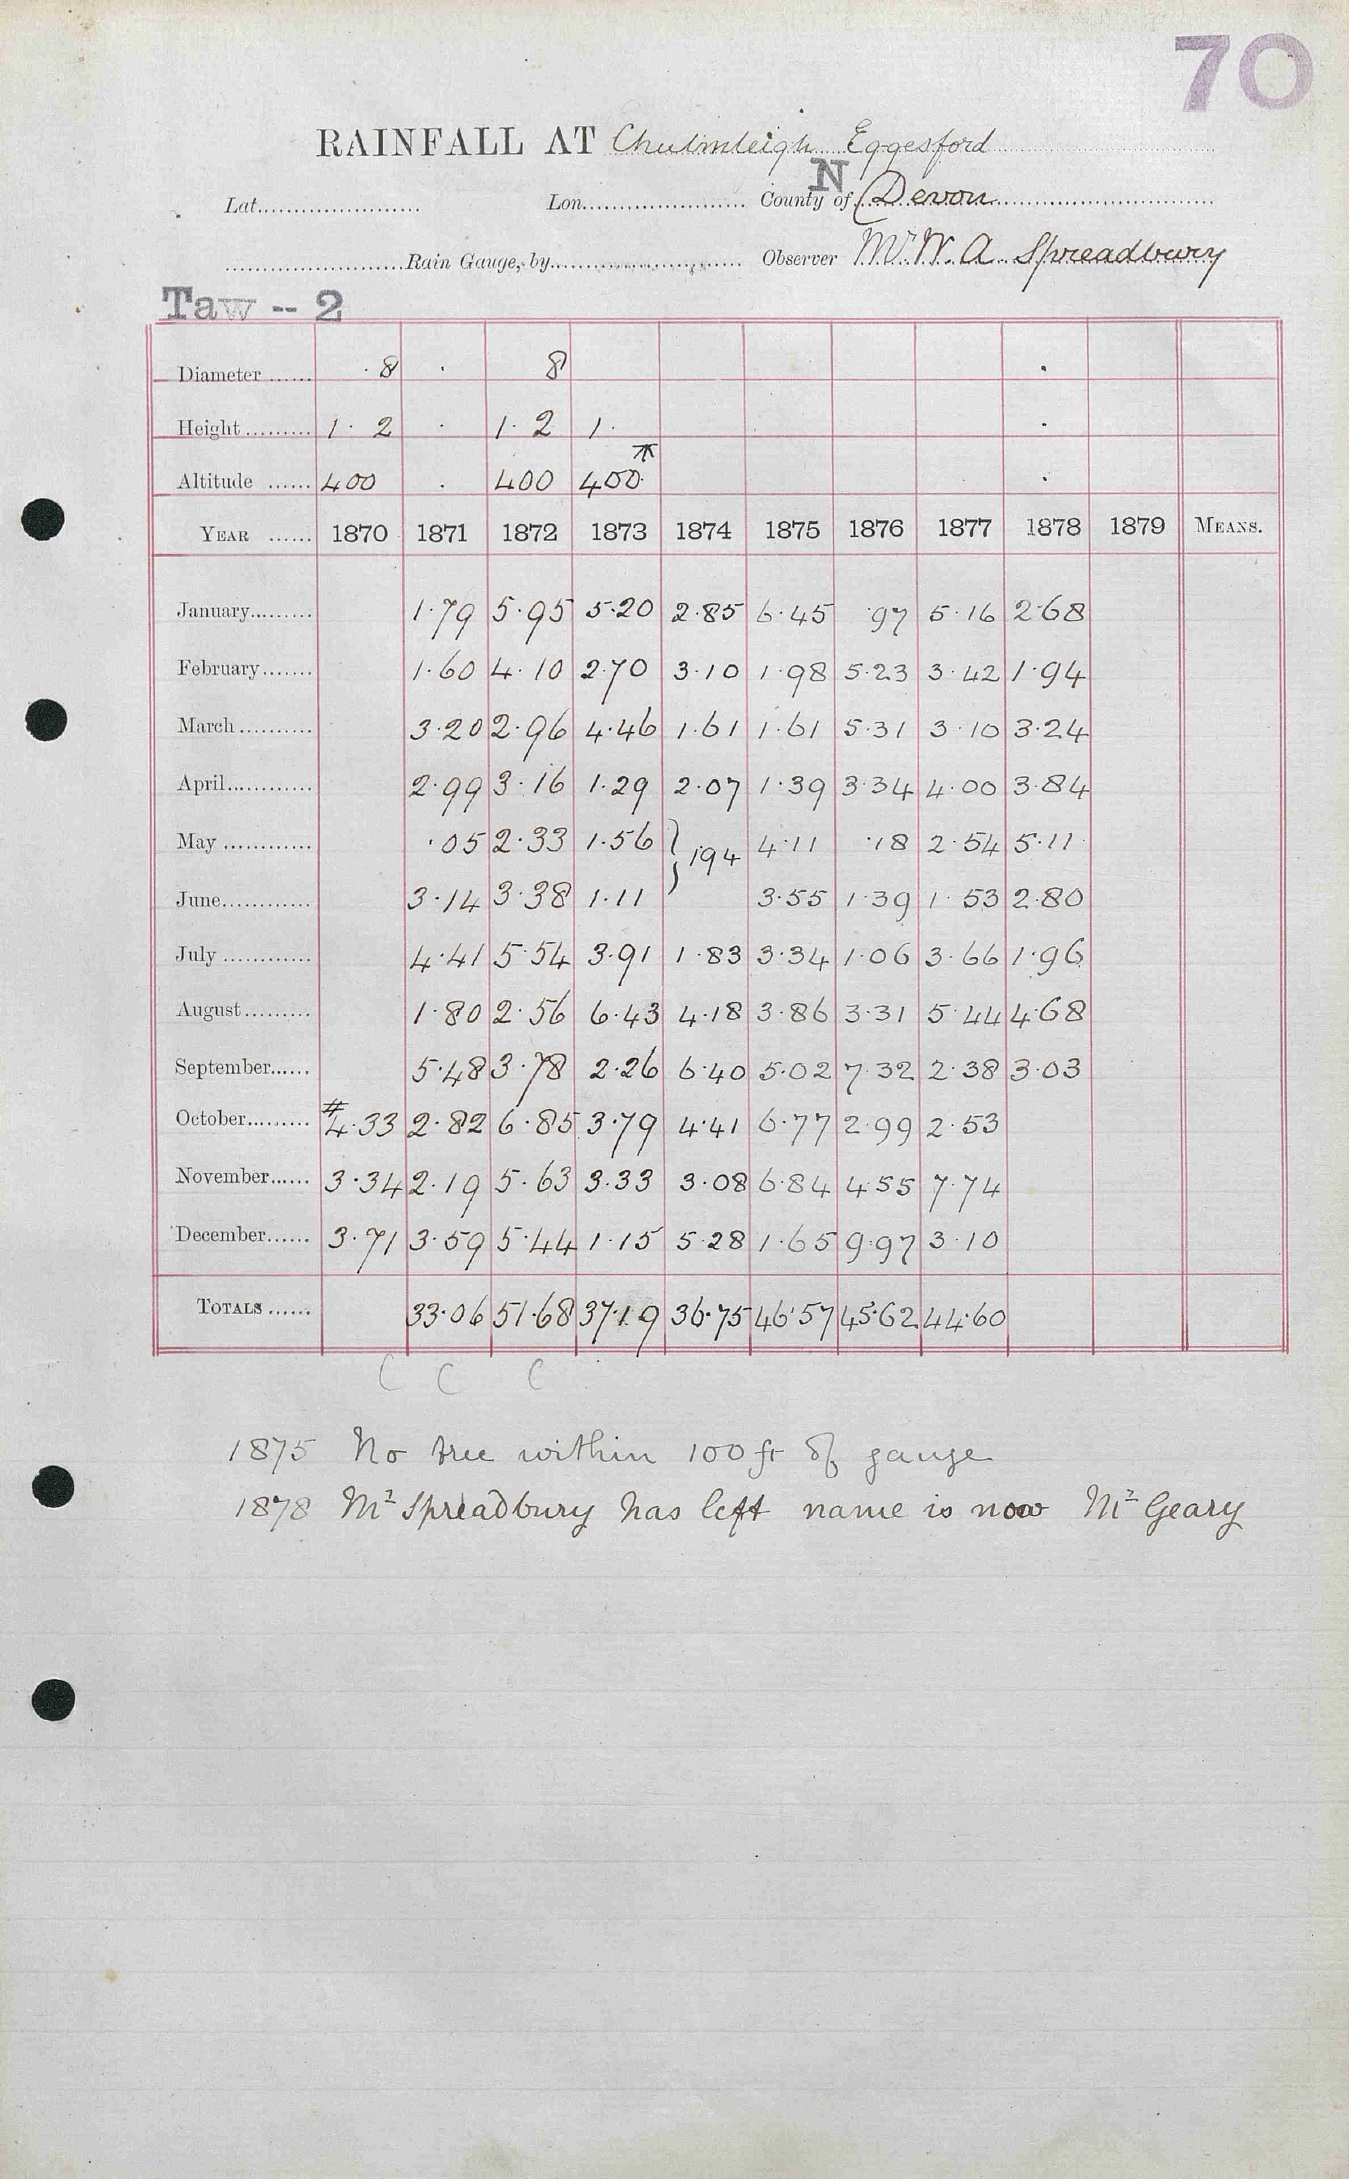 70
RAINFALL AT Chulmleigh Eggesford
N
Lat...................... Lon...................... County of Devon
Rain Gauge, by...................... Observer Mr W. A Spreadbury
Taw -- 2
Diameter ...... 8 · 8 ·
Height ......... 1· 2 · 1· 2 1· ·
Altitude ...... 400 · 400 400 ·
YEAR ...... 1870 1871 1872 1873 1874 1875 1876 1877 1878 1879 MEANS.
January......... 1·79 5·95 5·20 2·85 6·45 ·97 5·16 2·68
February....... 1·60 4·10 2·70 3·10 1·98 5·23 3·42 1·94
March.......... 3·20 2·96 4·46 1·61 1·61 5·31 3·10 3·24
April............ 2·99 3·16 1·29 2·07 1·39 3·34 4·00 3·84
May ............ ·05 2·33 1·56 } 1·94 4·11 ·18 2·54 5·11
June............ 3·14 3·38 1·11 3·55 1·39 1·53 2·80
July ............ 4·41 5·54 3·91 1·83 3·34 1·06 3·66 1·96
August......... 1·80 2·56 6·43 4·18 3·86 3·31 5·44 4·68
September...... 5·48 3·78 2·26 6·40 5·02 7·32 2·38 3·03
October......... #4·33 2·82 6·85 3·79 4·41 6·77 2·99 2·53
November...... 3·34 2·19 5·63 3·33 3·08 6·84 4·55 7·74
December...... 3·71 3·59 5·44 1·15 5·28 1·65 9·97 3·10
TOTALS ...... 33·06 51·68 37·19 36·75 46·57 45·62 44·60
C C C
1875 No tree within 100 ft of gauge
1878 Mr Spreadbury has left name is now Mr Geary